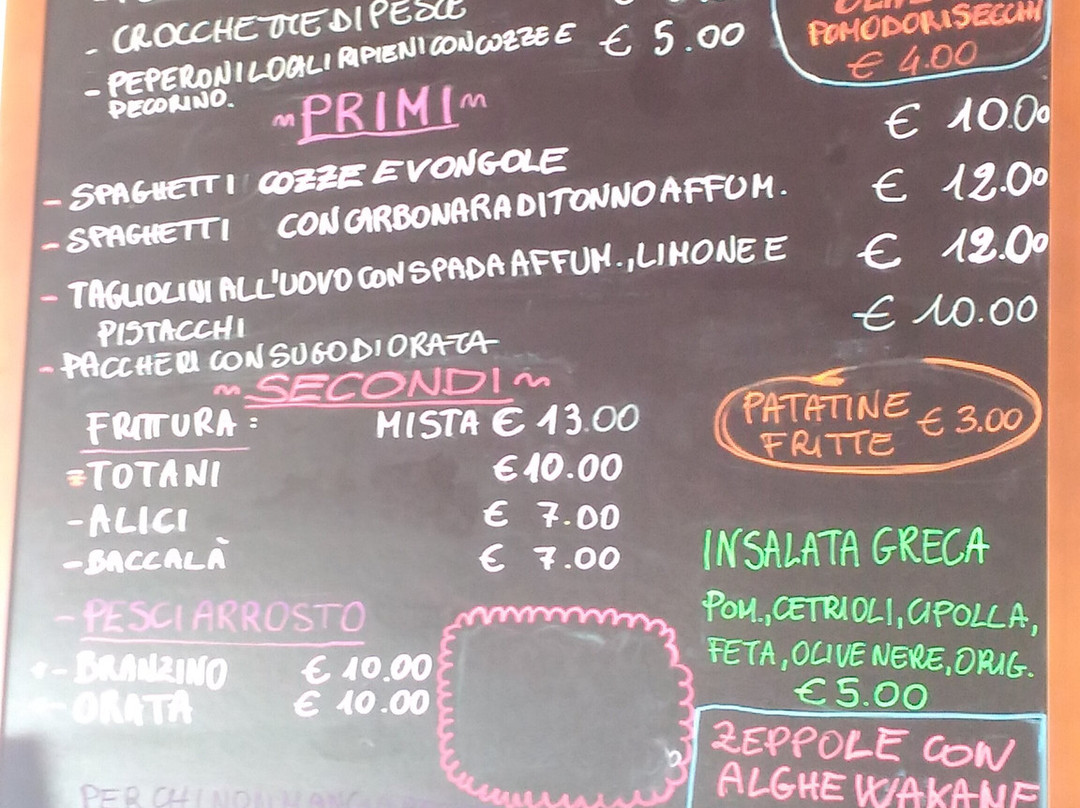 - CROCCHETTE DI PESCE
- PEPERONI LOCALI RIPIENI CON COZZE E € 5.00
PECORINO.
POMODORI SECCHI
€ 4.00
~PRIMI~
- SPAGHETTI COZZE E VONGOLE € 10.00
- SPAGHETTI CON CARBONARA DI TONNO AFFUM. € 12.00
- TAGLIOLINI ALL'UOVO CON SPADA AFFUM., LIMONE E € 12.00
PISTACCHI
- PACCHERI CON SUGO DI ORATA € 10.00
~SECONDI~
FRITTURA: MISTA € 13.00
- TOTANI € 10.00
- ALICI € 7.00
- BACCALÀ € 7.00
- PESCI ARROSTO
- BRANZINO € 10.00
- ORATA € 10.00
PATATINE € 3.00
FRITTE
INSALATA GRECA
POM., CETRIOLI, CIPOLLA,
FETA, OLIVE NERE, ORIG.
€ 5.00
ZEPPOLE CON
ALGHE WAKANE
PER CHI NON MANGIA